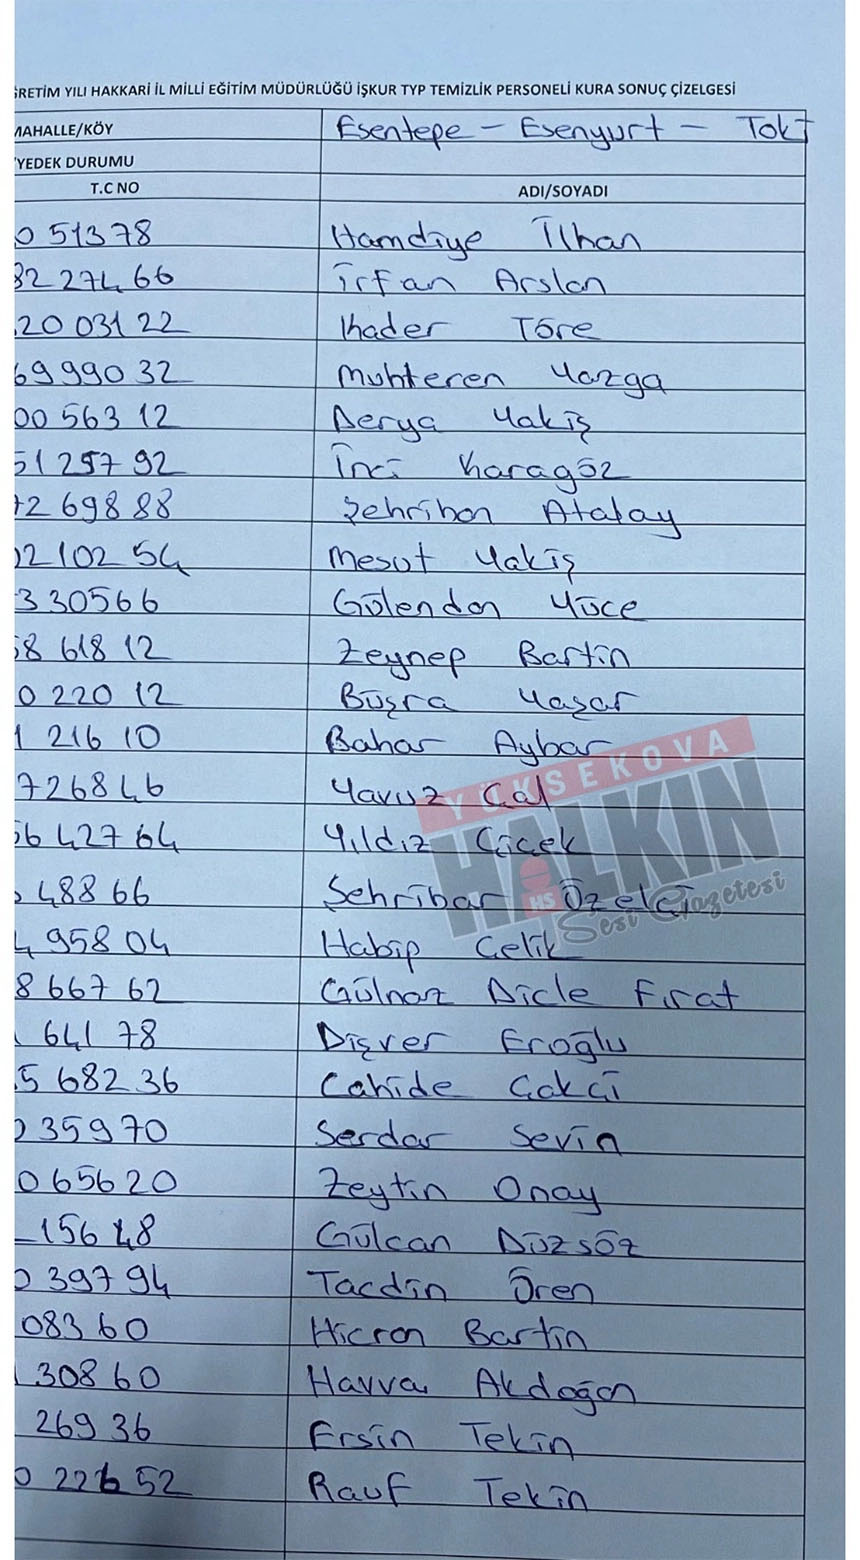 ĞRETİM YILI HAKKARİ İL MİLLİ EĞİTİM MÜDÜRLÜĞÜ İŞKUR TYP TEMİZLİK PERSONELİ KURA SONUÇ ÇİZELGESİ
MAHALLE/KÖY Esentepe - Esenyurt - Toki
YEDEK DURUMU
T.C NO ADI/SOYADI
0 51378 Hamdiye İlhan
82 274 66 İrfan Arslan
20 031 22 Kader Töre
69 990 32 Muhteren Yazga
00 563 12 Derya Yakiş
51 257 92 İnci Karagöz
72 698 88 Şehriban Atalay
02 102 54 Mesut Yakiş
330566 Gülendan Yüce
58 618 12 Zeynep Bartin
0 220 12 Büşra Yaşar
1 216 10 Bahar Aybar
726846 Yavuz Çal
56 427 64 Yıldız Çiçek
488 66 Şehribar Özelçi
4 958 04 Habip Çelik
8 667 62 Gülnaz Dicle Fırat
641 78 Dişver Eroğlu
5 682 36 Cahide Çakçi
0 359 70 Serdar Sevin
0 656 20 Zeytin Onay
156 48 Gülcan Düzsöz
0 397 94 Tacdin Ören
083 60 Hicran Bartin
308 60 Havva Akdoğan
269 36 Ersin Tekin
0 226 52 Rauf Tekin
YÜKSEKOVA
HALKIN
HS
Sesi Gazetesi